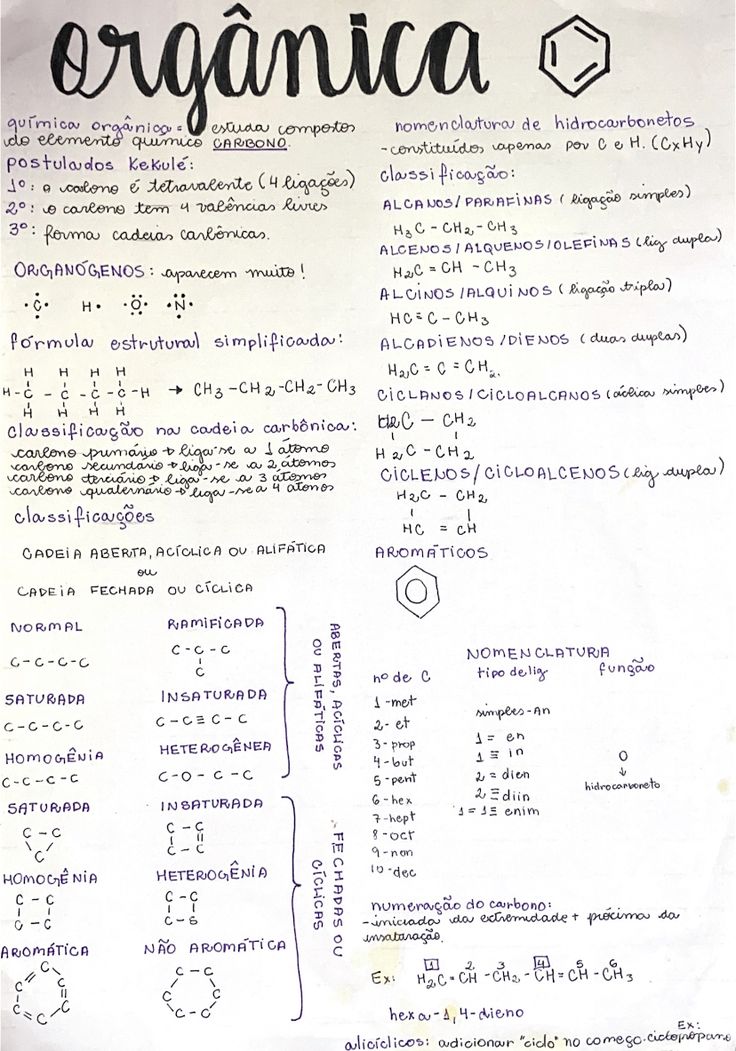 orgânica
química orgânica = estuda compostos
do elemento químico CARBONO.
postulados Kekulé:
1º: o carbono é tetravalente (4 ligações)
2º: o carbono tem 4 valências livres
3º: forma cadeias carbônicas.
ORGANÓGENOS: aparecem muito!
C H O N
fórmula estrutural simplificada:
H H H H
H - C - C - C - C - H → CH3 - CH2 - CH2 - CH3
H H H H
classificação na cadeia carbônica:
carbono primário → liga-se a 1 átomo
carbono secundário → liga-se a 2 átomos
carbono terciário → liga-se a 3 átomos
carbono quaternário → liga-se a 4 átomos
classificações
CADEIA ABERTA, ACÍCLICA OU ALIFÁTICA
ou
CADEIA FECHADA OU CÍCLICA
NORMAL RAMIFICADA
C-C-C-C C-C-C
C
SATURADA INSATURADA
C-C-C-C C-C≡C-C
HOMOGÊNIA HETEROGÊNEA
C-C-C-C C-O-C-C
ABERTAS, ACÍCLICAS
OU ALIFÁTICAS
SATURADA INSATURADA
C-C C-C
C C-C
HOMOGÊNIA HETEROGÊNIA
C-C C-C
C-C C-S
AROMÁTICA NÃO AROMÁTICA
C C C C C C
C-C C C C-C
FECHADAS OU
CÍCLICAS
nomenclatura de hidrocarbonetos
-constituídos apenas por C e H. (CxHy)
classificação:
ALCANOS/PARAFINAS (ligação simples)
H3C - CH2 - CH3
ALCENOS/ALQUENOS/OLEFINAS (lig dupla)
H2C = CH - CH3
ALCINOS/ALQUINOS (ligação tripla)
HC≡C - CH3
ALCADIENOS/DIENOS (duas duplas)
H2C = C = CH2.
CICLANOS/CICLOALCANOS (cíclica simples)
H2C - CH2
H2C - CH2
CICLENOS/CICLOALCENOS (lig dupla)
H2C - CH2
HC = CH
AROMÁTICOS
NOMENCLATURA
nº de C tipo de lig função
1-met
2-et
3-prop
4-but
5-pent
6-hex
7-hept
8-oct
9-non
10-dec
simples-An
1 = en
1 ≡ in
2 = dien
2 ≡ diin
1= 1≡ enim
O
↓
hidrocarboneto
numeração do carbono:
-iniciada da extremidade + próxima da
insaturação.
1 2 3 4 5 6
Ex: H2C=CH-CH2-CH=CH-CH3
hexa-1,4-dieno
Ex:
alicíclicos: adicionar "ciclo" no começo. ciclopropano